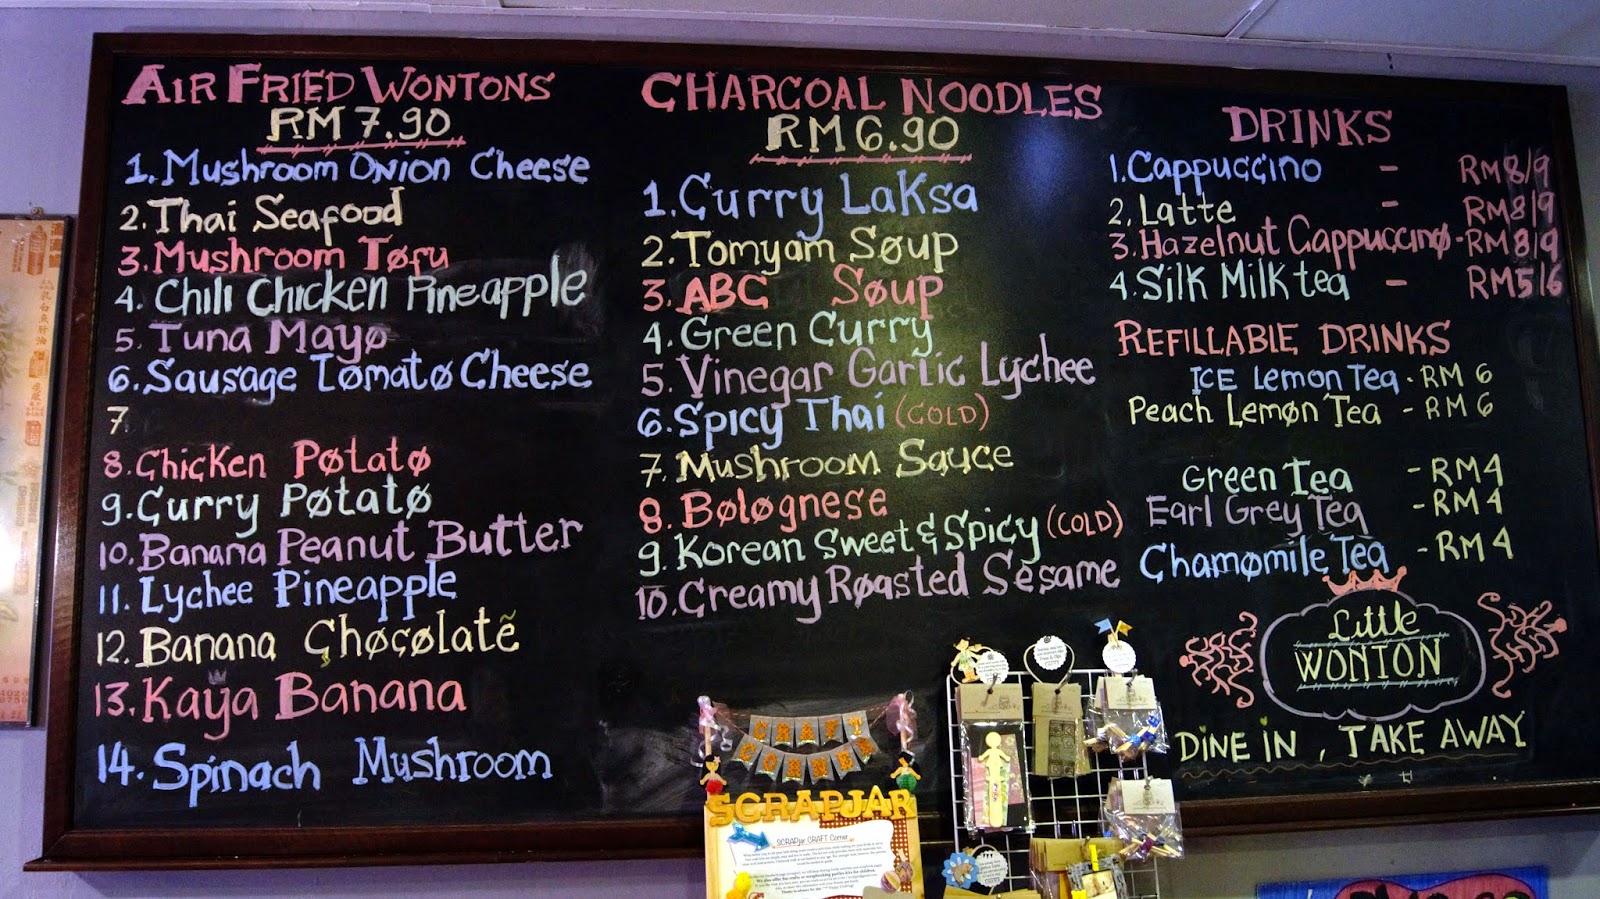 AIR FRIED WONTONS
RM 7.90
1. Mushroom Onion Cheese
2. Thai Seafood
3. Mushroom Tofu
4. Chili Chicken Pineapple
5. Tuna Mayo
6. Sausage Tomato Cheese
7.
8. Chicken Potato
9. Curry Potato
10. Banana Peanut Butter
11. Lychee Pineapple
12. Banana Chocolate
13. Kaya Banana
14. Spinach Mushroom
CHARCOAL NOODLES
RM 6.90
1. Curry Laksa
2. Tomyam Soup
3. ABC Soup
4. Green Curry
5. Vinegar Garlic Lychee
6. Spicy Thai (COLD)
7. Mushroom Sauce
8. Bolognese
9. Korean Sweet & Spicy (COLD)
10. Creamy Roasted Sesame
DRINKS
1. Cappuccino - RM 8/9
2. Latte - RM 8/9
3. Hazelnut Cappuccino - RM 8/9
4. Silk Milk tea - RM 5/6
REFILLABLE DRINKS
ICE Lemon Tea - RM 6
Peach Lemon Tea - RM 6
Green Tea - RM 4
Earl Grey Tea - RM 4
Chamomile Tea - RM 4
Little
WONTON
DINE IN , TAKE AWAY
CRAFT
CORNER
SCRAPJAR
SCRAPjar CRAFT Corner